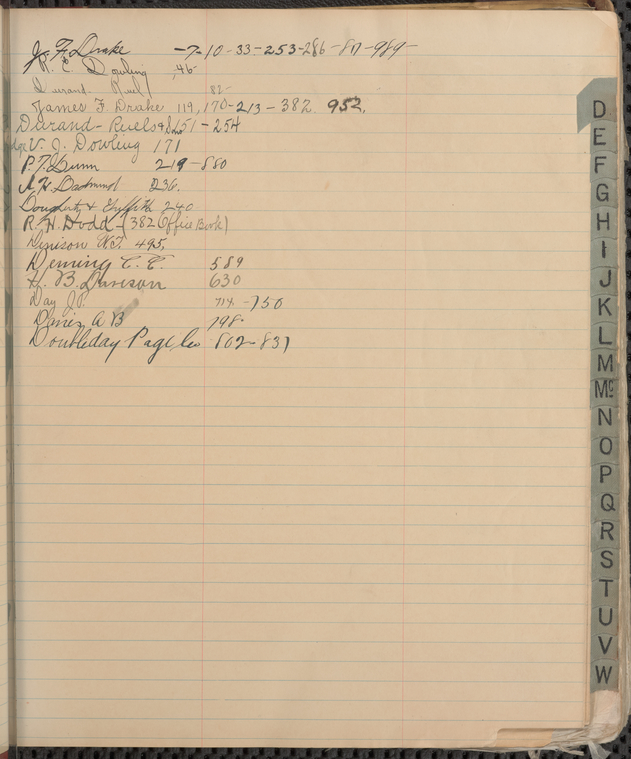 J. F. Drake -7-10-33-253-286-811-989-
R. C. Dowling 46-
Durand Ruel 82-
James F. Drake 119, 170-213-382. 952,
Durand-Ruels 151-254
V. J. Dowling 171
P. T. Dunn 219-880
236.
Dougherty & Griffith 240
R. H. Dodd-(382 Office Book)
Denison 495,
Deming C. C. 589
H. B. Davison 630
Day J.P. 714-750
Davis, A B 798-
Doubleday Page Co 802-831
D
E
F
G
H
I
J
K
L
M
Mc
N
O
P
Q
R
S
T
U
V
W